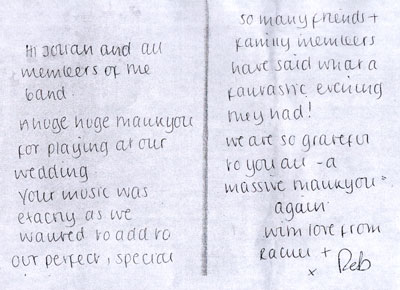 Hi Jovian and all
members of the
band.
A huge huge thankyou
for playing at our
wedding
Your music was
exactly as we
wanted to add to
our perfect, special
So many friends +
family members
have said what a
fantastic evening
they had!
we are so grateful
to you all - a
massive thankyou
again
with love from
Rachel +
x Deb